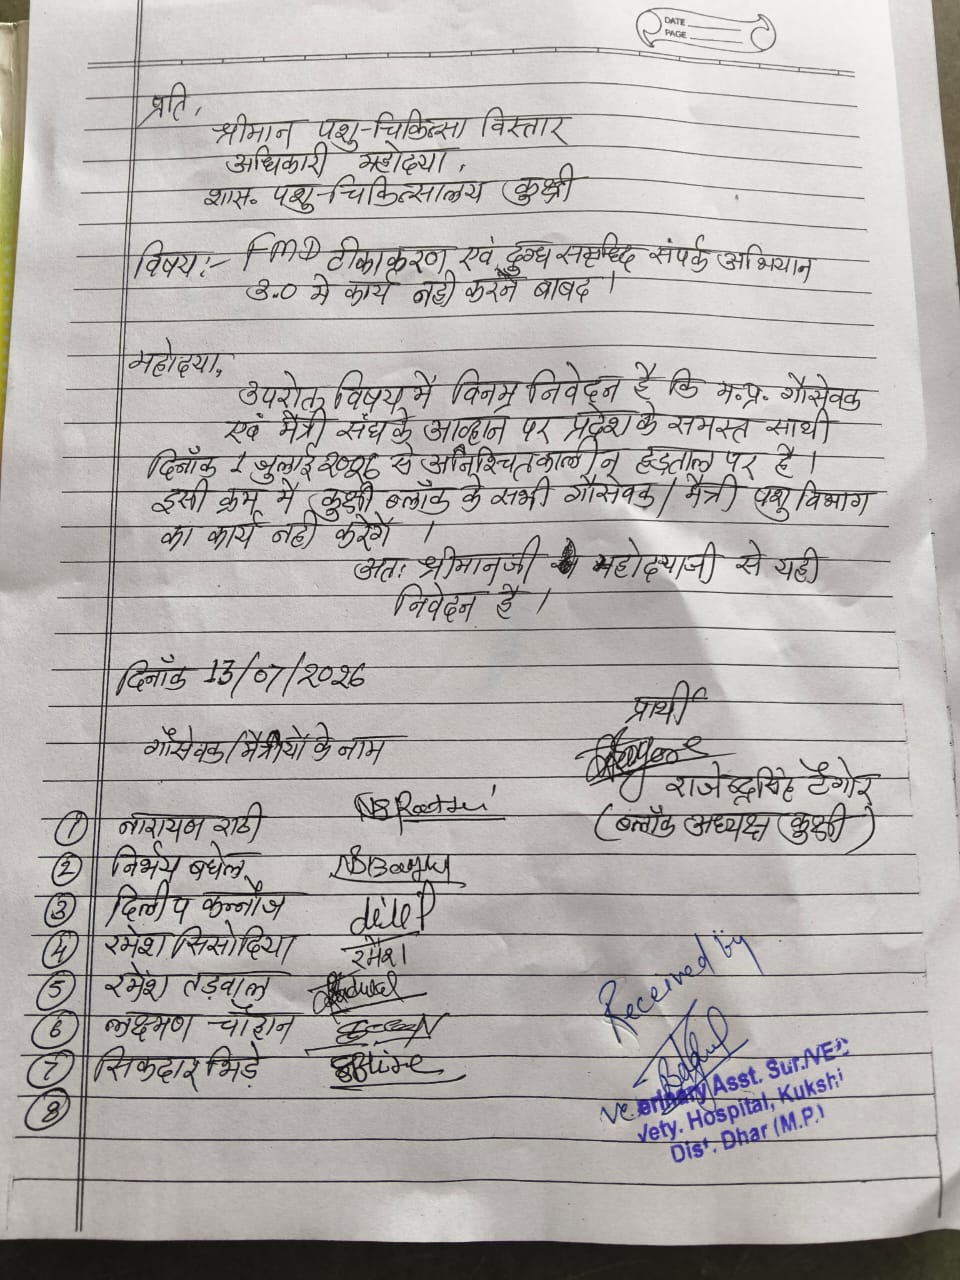 DATE
PAGE
प्रति,
श्रीमान पशु-चिकित्सा विस्तार
अधिकारी महोदया,
शास. पशु-चिकित्सालय कुक्षी
विषय:- FMD टीकाकरण एवं दुग्ध समृध्दि संपर्क अभियान
3.0 में कार्य नही करने बाबद ।
महोदया,
उपरोक्त विषय में विनम्र निवेदन है कि म.प्र. गौसेवक
एवं मैत्री संघ के आव्हान पर प्रदेश के समस्त साथी
दिनाँक 1 जुलाई 2026 से अनिश्चितकालीन हड़ताल पर है ।
इसी क्रम में कुक्षी ब्लॉक के सभी गौसेवक / मैत्री पशु विभाग
का कार्य नही करेंगे ।
अतः श्रीमानजी महोदयाजी से यही
निवेदन है ।
दिनाँक 13/07/2026
प्रार्थी
गौसेवक/मैत्रीयों के नाम
राजेन्द्रसिंह टैगोर
(ब्लॉक अध्यक्ष कुक्षी)
① नारायण राठी
② निर्भय बघेल
③ दिलीप कन्नौज dilip
④ रमेश सिसोदिया रमेश
⑤ रमेश तड़वाल
⑥ लक्ष्मण चौहान
⑦ सिकदार भिड़े
⑧
Received by
Asst. Sur.
Vety. Hospital, Kukshi
Dist. Dhar (M.P.)